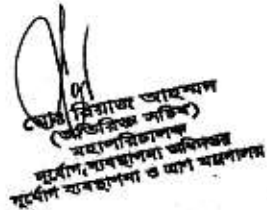 (মোঃ রিয়াজ আহম্মদ)
(অতিরিক্ত সচিব)
মহাপরিচালক
দুর্যোগ ব্যবস্থাপনা অধিদপ্তর
দুর্যোগ ব্যবস্থাপনা ও ত্রাণ মন্ত্রণালয়